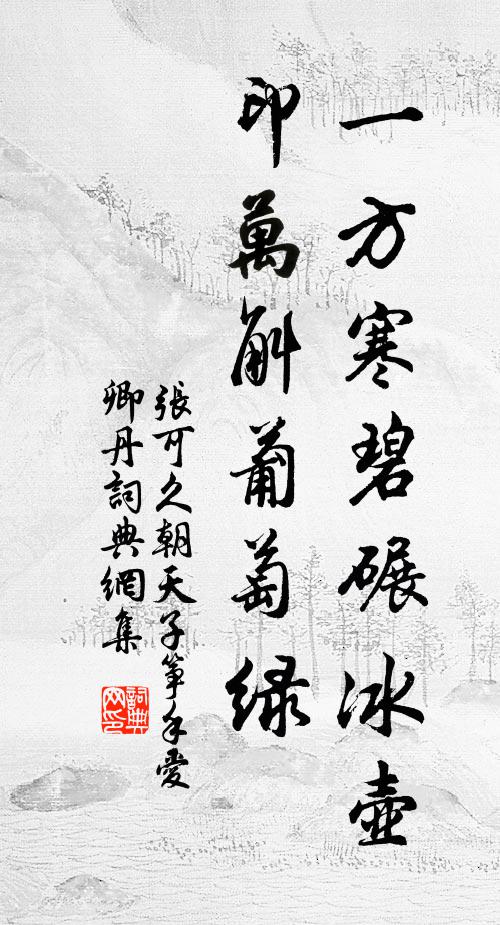 一方寒碧碾冰壺
印萬斛葡萄綠
張可久朝天子箏手愛
卿丹詞典網集
詞典
網印